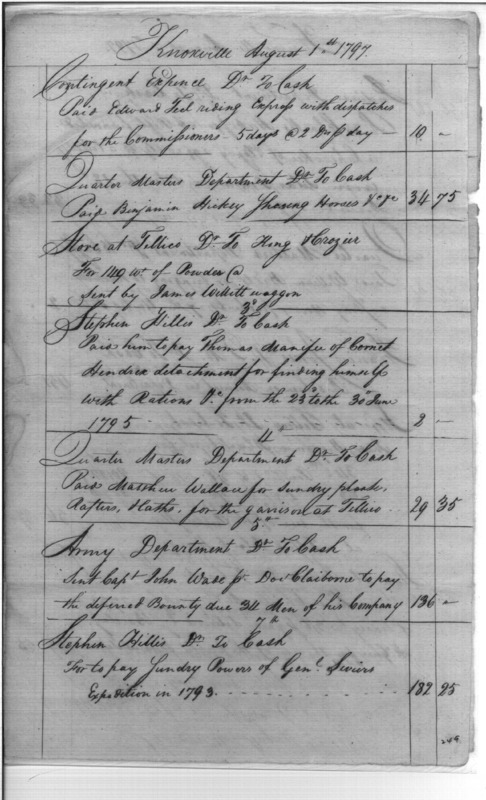 Knoxville August 1st 1797.
Contingent Expence Dr To Cash
Paid Edward Teel riding Express with dispatches
for the Commissioners - 5 days @ 2 Drs pr day - 10 -
Quarter Masters Department Dr To Cash
Paid Benjamin Hickey Shoeing Horses &c &c 34 75
Store at Tellico Dr To King & Crozier
For 149 wt of Powder @
Sent by James Willitt waggon
3d
Stephen Hillis Dr To Cash
Paid him to pay Thomas Manifee of Cornet
Hendrex detachment for finding himself
with Rations &c from the 23d to the 30 June
1795 - 2 -
4th
Quarter Masters Department Dr To Cash
Paid Matthew Wallace for Sundry plank,
Rafters, & laths, for the garrison at Tellico .. 29 35
5th
Army Department Dr To Cash
Sent Capt John Wade pr Docr Claiborne to pay
the deferred Bounty due 34 Men of his Company 136 -
7th
Stephen Hillis Dr To Cash
For to pay Sundry Powers of Genl Seviers
Expedition in 1793 . . . . . . . . . . 182 25
249